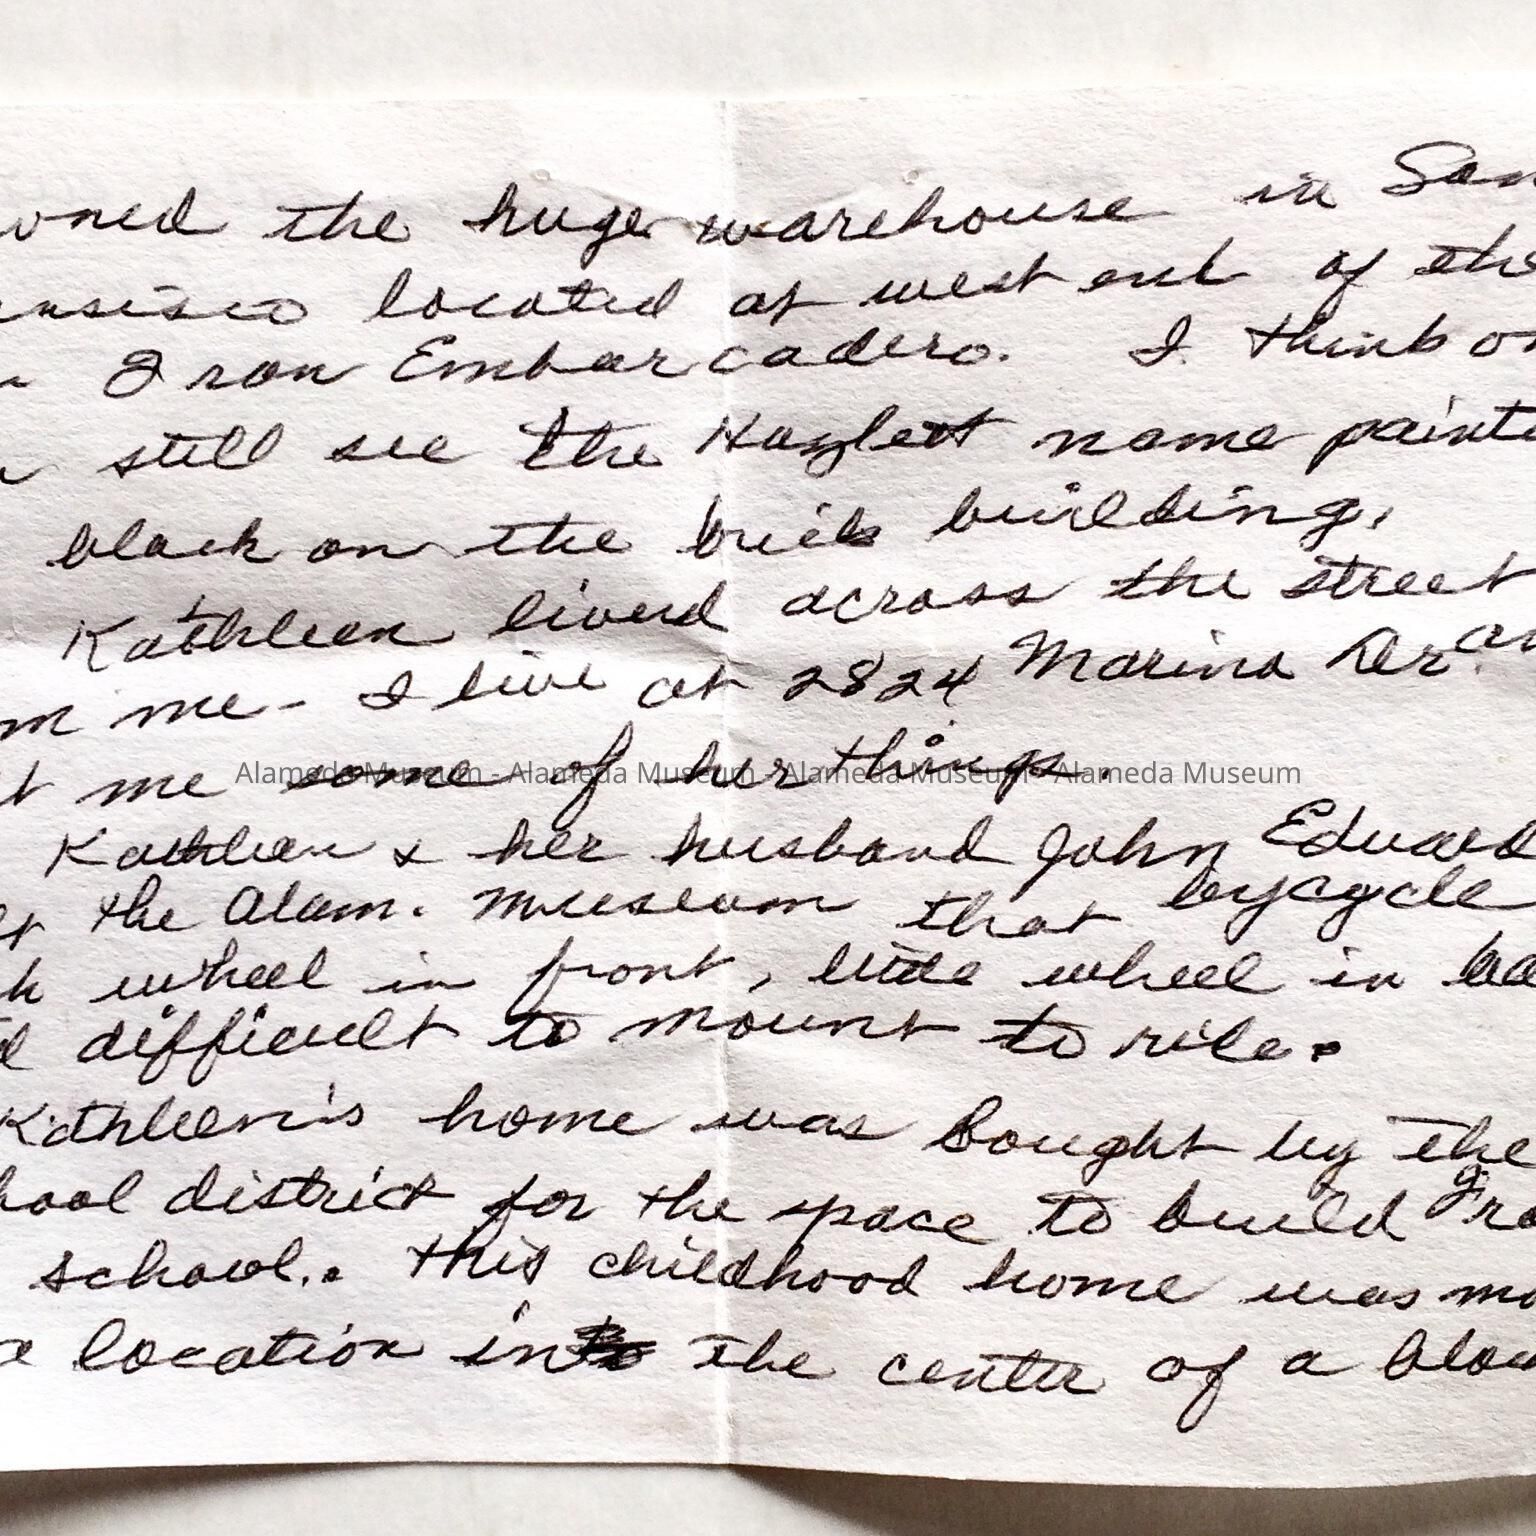 owned the huge warehouse in San
ansisco located at west end of the
Iron Embarcadero. I think on
still see the Hazlett name painte
black on the brick building,
Kathleen lived across the street
m me - I live at 2824 Marina Dr. an
t me some of her things.
Alameda Museum - Alameda Museum - Alameda Museum - Alameda Museum
Kathleen & her husband John Edward
the Alam. Museum that bycycle
wheel in front, little wheel in ba
d difficult to mount to ride.
Kathleen's home was bought by the
hool district for the space to build Fra
school.. This childhood home was mo
a location in the center of a bloc